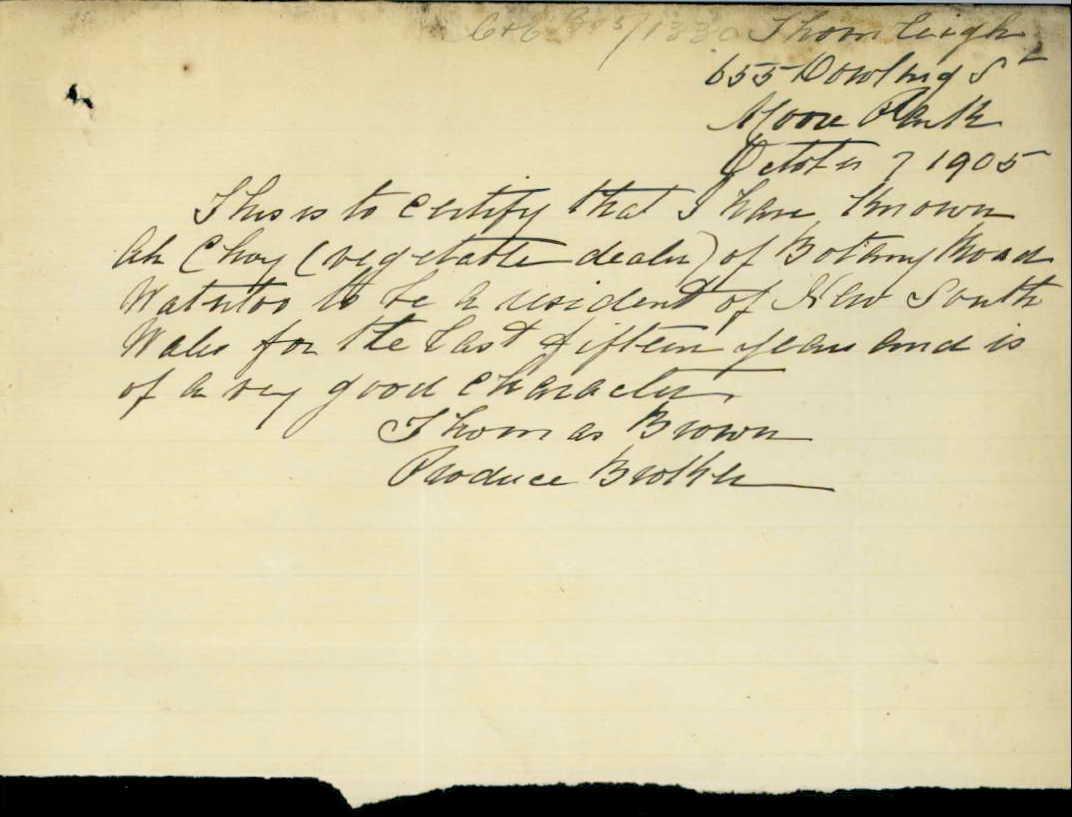 Thornleigh
655 Dowling St
Moore Park
October 7 1905
This is to certify that I have known
Ah Choy (vegetable dealer) of Botany Road
Waterloo to be a resident of New South
Wales for the last fifteen years and is
of a very good character.
Thomas Brown
Produce Broker